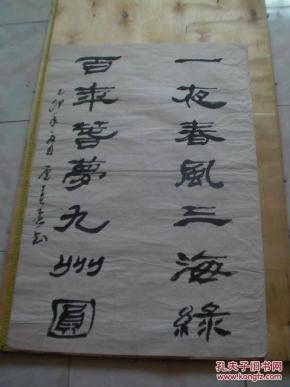 一夜春風三海綠
百年誓夢九州圓
乙卯年
孔夫子旧书网